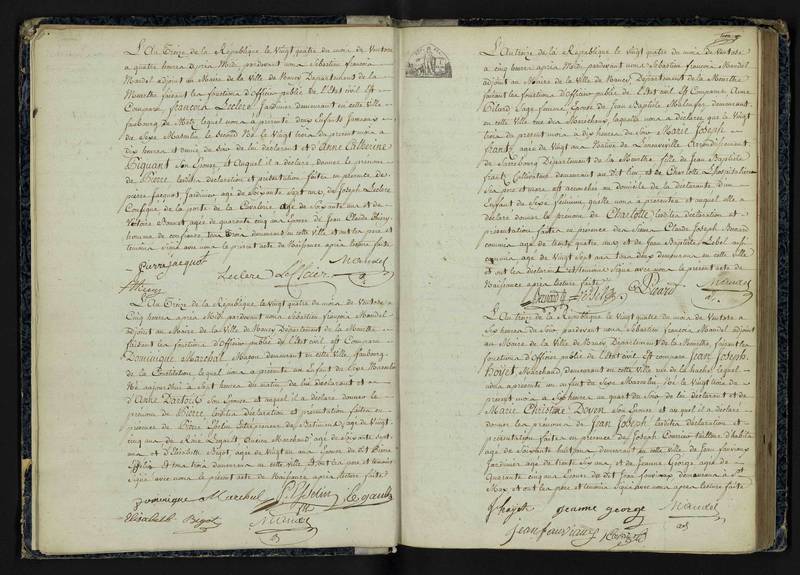 L'An Treize de la République le Vingt quatre du mois de Ventose
a quatre heures d'après Midi pardevant nous Sébastien françois
Mandel adjoint au Maire de la Ville de Nancy Département de la
Meurthe faisant les fonctions d'Officier public de l'Etat civil Est
Comparu françois Leclerc Jardinier demeurant en cette Ville
faubourg de Metz lequel nous a présenté deux Enfants Jumeaux
du Sexe Masculin, le Second Né le Vingt trois du présent mois a
dix heures et demie du Soir de lui déclarant et d'Anne Catherine
Piquant Son Epouse, et auquel il a déclaré donner le prénom
de Pierre lesdites déclaration et présentation faites en présence de
pierre Jacquot Jardinier agé de Soixante Sept ans, de Joseph Leclerc
Consigne de la porte de la Cavalerie agé de Soixante ans et de
Victoire Bonnet agée de quarante cinq ans Epouse de Jean Claude
homme de confiance, tous trois demeurant en cette ville et ont les père et
témoins Signé avec nous le présent acte de Naissance après lecture faite
pierre jacquot
Leclerc Mandel
L'An Treize de la République le Vingt quatre du mois de Ventose
Cinq heures après Midi pardevant nous Sébastien françois Mandel
adjoint au Maire de la Ville de Nancy Département de la Meurthe
faisant les fonctions d'Officier public de l'Etat civil Est Comparu
Dominique Marchal Maçon demeurant en cette Ville faubourg
de la Constitution lequel nous a présenté un Enfant du Sexe Masculin
Né aujourd'hui a Sept heures du matin de lui déclarant et
d'Anne Son Epouse et auquel il a déclaré donner le
prénom de Pierre lesdites déclaration et présentation faites en
présence de Pierre Entrepreneur de Batiments, agé de Vingt
cinq ans de René Legault Ancien Marchand agé de Soixante Sept
ans et d'Elisabeth Bigot, agée de Vingt un ans Epouse du dit Pierre
Et tous trois demeurant en cette Ville Et ont les père et témoins
Signé avec nous le présent acte de Naissance après lecture faite
Dominique Marchal legault
Elisabeth Bigot Mandel
L'An treize de la République le Vingt quatre du mois de Ventose
a cinq heures après Midi pardevant nous Sébastien françois Mandel
adjoint au Maire de la Ville de Nancy Département de la Meurthe
faisant les fonctions d'Officier public de l'Etat civil Est Comparue Anne
Sage femme Epouse de Jean Baptiste demeurant
en cette Ville rue des Maréchaux, laquelle nous a déclaré que le Vingt
trois du présent mois a dix heures du Soir Marie Joseph
frantz agée de Vingt ans Native de Arrondissement
de Sarrebourg Département de la Meurthe fille de Jean Baptiste
frantz Cultivateur demeurant au dit lieu et de Charlotte L'hospitalier
Ses père et mère est accouchée au domicile de la déclarante d'un
Enfant du Sexe féminin, quelle nous a présenté et auquel elle a
déclaré donner le prénom de Charlotte lesdites déclaration et
présentation faites en présence des Sieurs Claude Joseph
commis agé de trente quatre ans et de Jean Baptiste Lebel
commis agé de Vingt Sept ans tous deux demeurant en cette Ville
et ont les déclarante et témoins Signé avec nous le présent acte de
Naissance après lecture faite
Mandel
L'An treize de la République le Vingt quatre du mois de Ventose a
Six heures du Soir pardevant nous Sébastien françois Mandel adjoint
au Maire de la Ville de Nancy Département de la Meurthe, faisant les
fonctions d'Officier public de l'Etat civil Est comparu Jean Joseph
Hoyet Marchand demeurant en cette Ville rue de la hache, lequel
nous a présenté un enfant du Sexe Masculin Né le Vingt trois du
présent mois a Six heures un quart du Soir de lui déclarant et de
Marie Christine Doyen Son Epouse et auquel il a déclaré
donner les prénoms de Jean Joseph lesdites déclaration et
présentation faites en présence de Joseph tailleur d'habits
agé de Soixante huit ans demeurant en cette Ville de Jean fauviaux
Jardinier agé de trente Six ans et de Jeanne George agée de
Quarante cinq ans Epouse du dit Jean fauviaux demeurant a St
Max et ont les père et témoins Signé avec nous après lecture faite
jeanne george Mandel
jean fauviaux